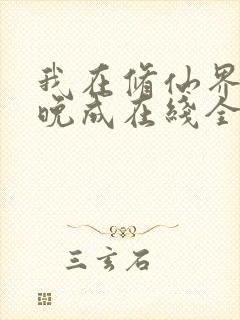 我在修仙界
晚成在线全
三玄石